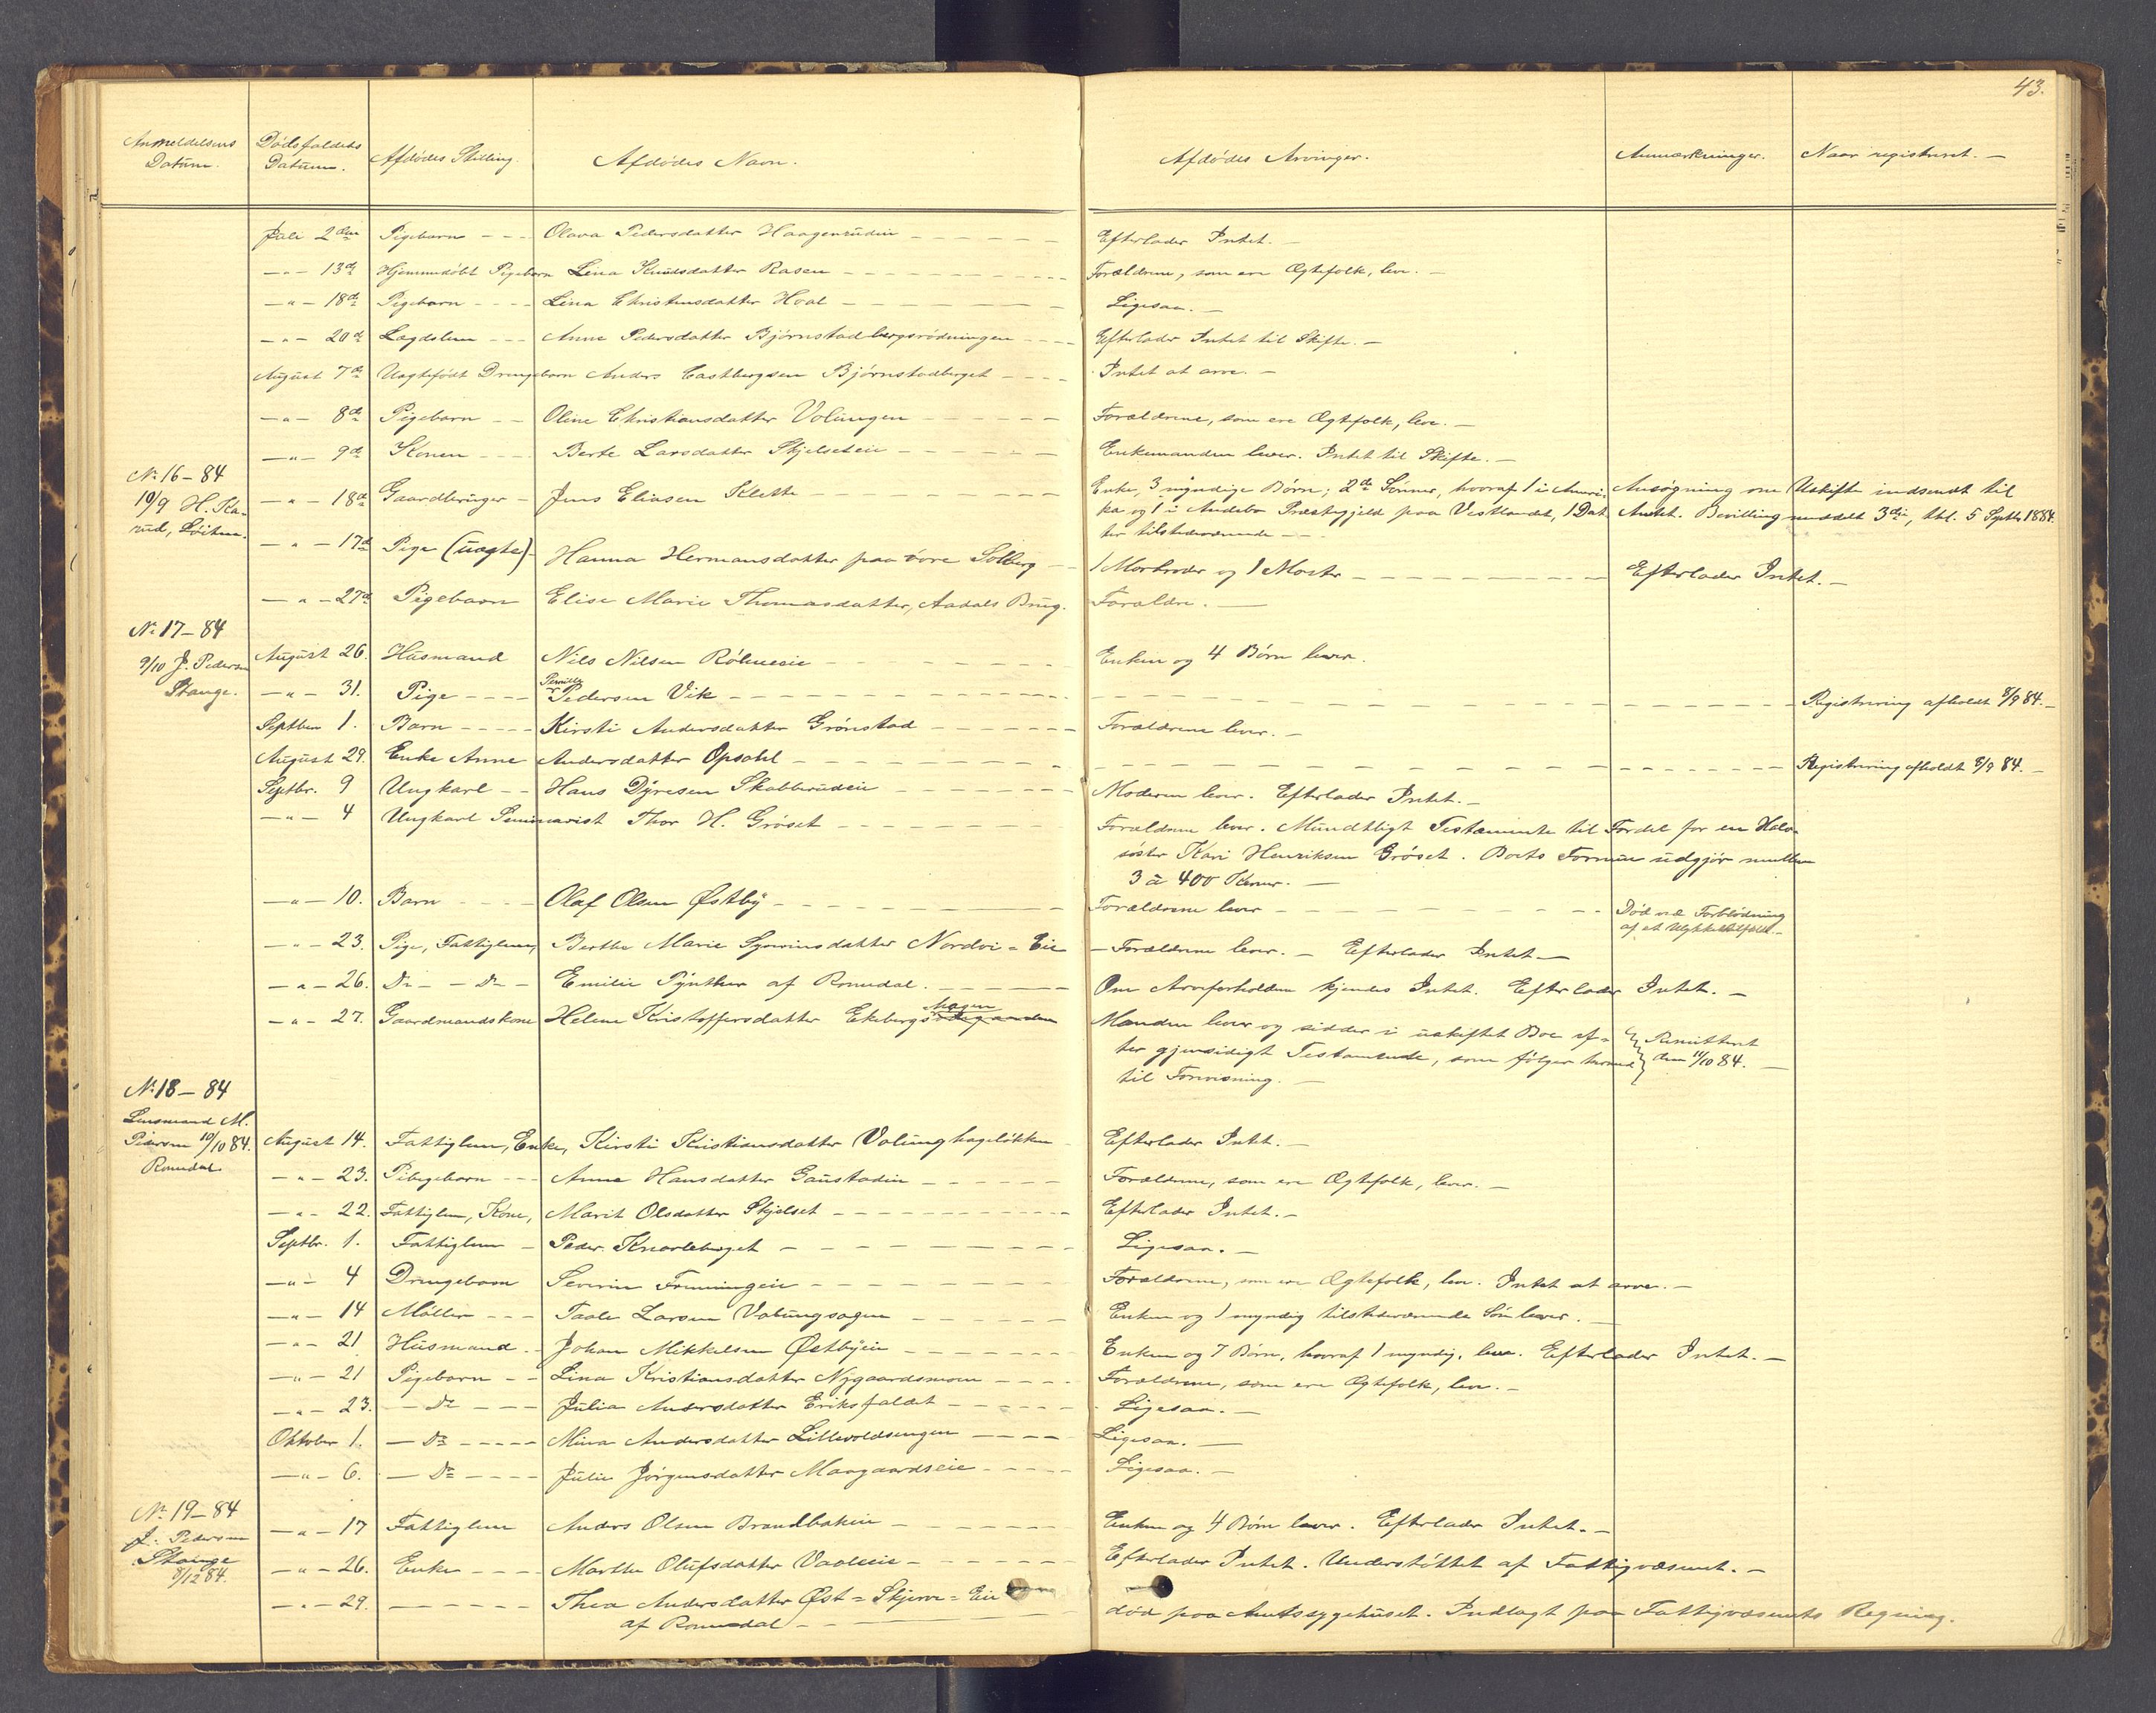 43.
Anmeldelsens Datum. Dödsfaldets Datum. Afdödes Stilling. Afdödes Navn. Afdödes Arvinger. Anmærkninger. Naar registreret. —
Juli 2den Pigebarn - - - Olava Pedersdatter Haagenrudeie - - - Efterlader Intet. —
— " — 13de Hjemmedöbt Pigebarn Lina Knudsdatter Rasen - - - Forældrene, som ere Ægtefolk, leve. —
— " — 18de Pigebarn - - - Lina Christensdatter Hoel - - - Ligesaa. —
— " — 20de Lægdslem - - - Anne Pedersdatter Björnstadbergsrödningen - - - Efterlader Intet til Skifte. —
August 7de Uægtefödt Drengebarn Anders Castbergsen Björnstadberget - - - Intet at arve. —
— " — 8de Pigebarn - - Oline Christiansdatter Volungen - - - Forældrene, som ere Ægtefolk, leve. —
— " — 9de Konen - - - Berte Larsdatter Skjelseteie - - - Enkemanden lever. Intet til Skifte. —
No 16 - 84
10/9 H. Ka-
rud, Löiten.
— " — 18de Gaardbruger - Jens Eliasen Klette - - - Enke, 3 myndige Börn; 2de Sönner, hvoraf 1 i Ameri- Ansögning om Uskifte indsendt til
ka og 1 i Andebo Præstegjeld paa Vestlandet, 1 Dat- Amtet. Bevilling meddelt 3die, tbl. 5 Septbr 1884.
ter tilstedeværende - -
— " — 17de Pige (uægte) - Hanna Hermansdatter paa övre Solberg - - 1 Morbroder og 1 Moster - - - Efterlader Intet. —
— " — 27de Pigebarn Elise Marie Thomasdatter, Aadals Brug. Forældre. —
No 17 - 84
9/10 J. Pedersen
Stange.
August 26. Husmand Nils Nilsen Röhneeie - - - Enken og 4 Börn lever.
— " — 31. Pige - - - Pernille Pedersen Vik - - - Registrering afholdt 8/9 84. —
Septber 1. Barn - - - Kirsti Andersdatter Grönstad - - - Forældrene lever. —
August 29. Enke Anne Andersdatter Opsahl - - - Registrering afholdt 8/9 84. —
Septbr. 9 Ungkarl - - Hans Dyresen Skabberudeie - - - Moderen lever. Efterlader Intet. —
— " — 4 Ungkarl Seminarist Thor H. Gröset - - - Forældrene lever. Mundtligt Testamente til Fordel for en Halv-
söster Kari Henriksen Gröset. Boets Formue udgjör mellem
3 à 400 Kroner. —
— " — 10. Barn - - - Olaf Olsen Østby - - - Forældrene lever - - - Död ved Forblödning
af et Ulykkestilfælde. —
— " — 23. Pige, Fattiglem, Berthe Marie Syverinsdatter Nordvi = Eie - Forældrene lever. — Efterlader Intet —
— " — 26. Do - - Do - Emilie Pynther af Romedal. - - - Om Arveforholdene kjendes Intet. Efterlader Intet. —
— " — 27. Gaardmandskone Helene Kristoffersdatter Ekebergs Manden lever og sidder i uskiftet Boe ef- Remitteret
ter gjensidigt Testamente, som fölger herved den 11/10 84. —
til Forevisning. —
No 18 - 84
Lensmand M.
Pedersen 10/10 84.
Romedal.
August 14. Fattiglem, Enke, Kirsti Kristiansdatter Volunghagelökken - Efterlader Intet. —
— " — 23. Pigebarn - - - Anne Hansdatter Gaustadeie - - - Forældrene, som ere Ægtefolk, lever. —
— " — 22. Fattiglem, Kone, Marit Olsdatter Skjelset - - - Efterlader Intet. —
Septbr. 1. Fattiglem - Peder Knarleberget - - - Ligesaa. —
— " — 4 Drengebarn Severin Frenningeie - - - Forældrene, som ere Ægtefolk, leve. Intet at arve. —
— " — 14 Möller - - - Taale Larsen Volungsagen - - - Enken og 1 myndig tilstedeværende Sön lever. —
— " — 21 Husmand. - Johan Mikkelsen Østbyeie - - - Enken og 7 Börn, hvoraf 1 myndig, leve. Efterlader Intet. —
— " — 21 Pigebarn - - Lina Kristiansdatter Nygaardsmoen - - - Forældrene, som ere Ægtefolk, leve. —
— " — 23. - Do - - - Julia Andersdatter Eriksfaldet - - - Ligesaa. —
Oktober 1. - Do - - - Mina Andersdatter Lillevoldsengen - - - Ligesaa. —
— " — 6. - Do - - - Julie Jörgensdatter Maagaardseie - - - Ligesaa. —
No 19 - 84
J. Pedersen
Stange
8/12 84.
— " — 17 Fattiglem Anders Olsen Brandbakeie - - - Enken og 4 Börn lever. Efterlader Intet. —
— " — 26. Enke - - - Marthe Olufsdatter Vaaleeie - - - Efterlader Intet. Understöttet af Fattigvæsenet. —
— " — 29. - - - Thea Andersdatter Øst = Skjerve = Eie
af Romedal - - - död paa Amtssygehuset. Indlagt paa Fattigvæsenets Regning.